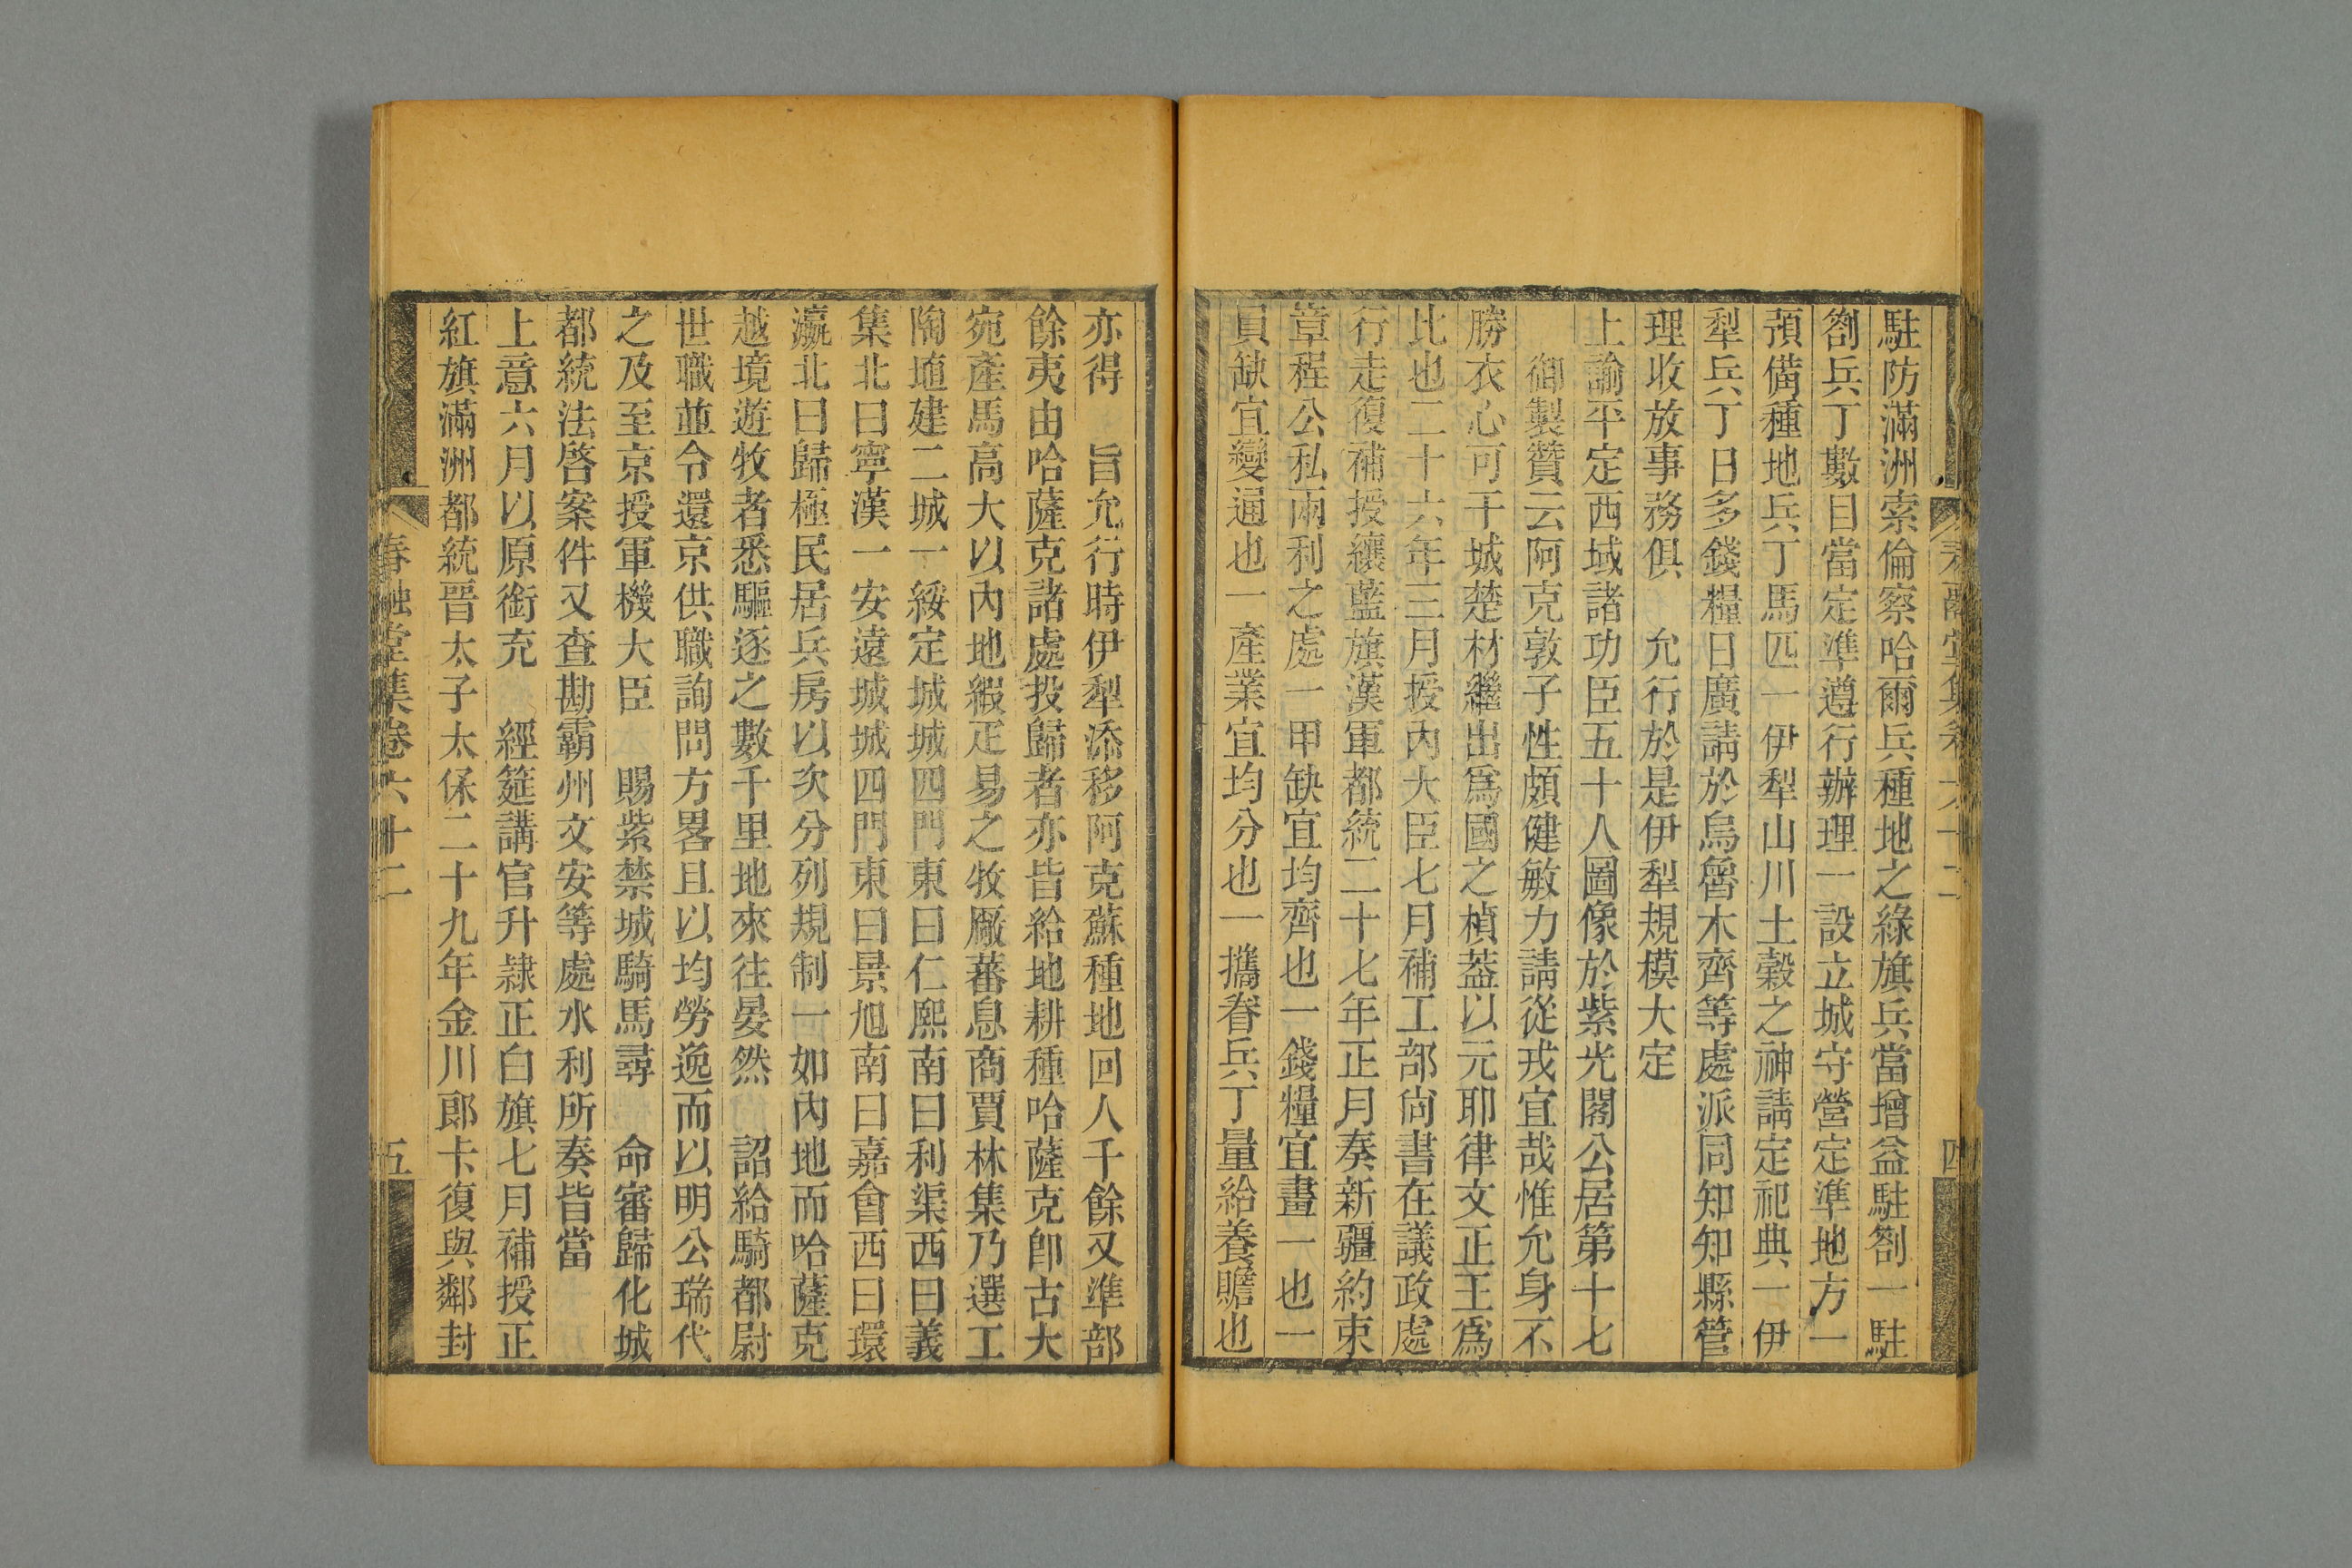 駐防滿洲索倫察哈爾兵種地之綠旗兵當增益駐劄一駐
劄兵丁數目當定準遵行辦理一設立城守營定準地方一
預備種地兵丁馬匹一伊犁山川土穀之神請定祀典一伊
犁兵丁日多錢糧日廣請於烏魯木齊等處派同知知縣管
理收放事務俱　允行於是伊犁規模大定
上諭平定西域諸功臣五十人圖像於紫光閣公居第十七
御製贊云阿克敦子性頗健敏力請從戎宜哉惟允身不
勝衣心可干城楚材繼出爲國之楨葢以元耶律文正王爲
比也二十六年三月授內大臣七月補工部尙書在議政處
行走復補授鑲藍旗漢軍都統二十七年正月奏新疆約束
章程公私兩利之處一甲缺宜均齊也一錢糧宜畫一也一
員缺宜變通也一產業宜均分也一攜眷兵丁量給養贍也
四
亦得　旨允行時伊犁添移阿克蘇種地回人千餘又準部
餘夷由哈薩克諸處投歸者亦皆給地耕種哈薩克卽古大
宛產馬高大以內地緞疋易之牧厰蕃息商賈林集乃選工
陶埴建二城一綏定城城四門東曰仁熙南曰利渠西曰義
集北曰寧漢一安遠城城四門東曰景旭南曰嘉會西曰環
瀛北曰歸極民居兵房以次分列規制一如內地而哈薩克
越境遊牧者悉驅逐之數千里地來往晏然　詔給騎都尉
世職並令還京供職詢問方畧且以均勞逸而以明公瑞代
之及至京授軍機大臣　賜紫禁城騎馬尋　命審歸化城
都統法啓案件又查勘霸州文安等處水利所奏皆當
上意六月以原銜充　經筵講官升隷正白旗七月補授正
紅旗滿洲都統晋太子太保二十九年金川郎卡復與鄰封
春融堂集卷六十二
五